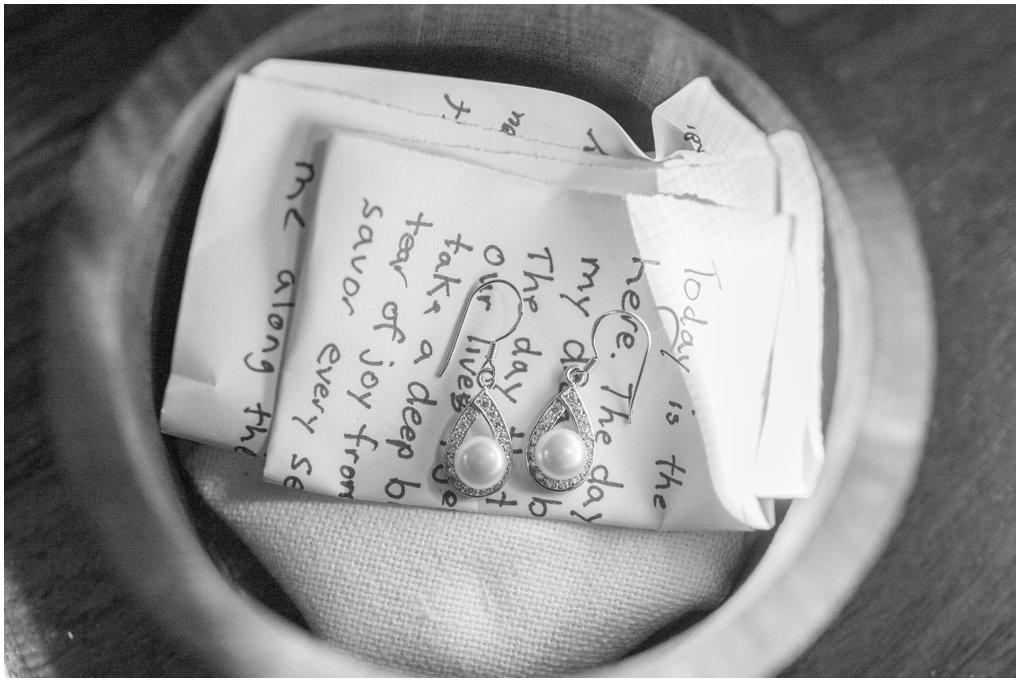 Today is the
here. The day
my
The day
Our lives
take a deep b
tear of joy from
savor every se
me along thi